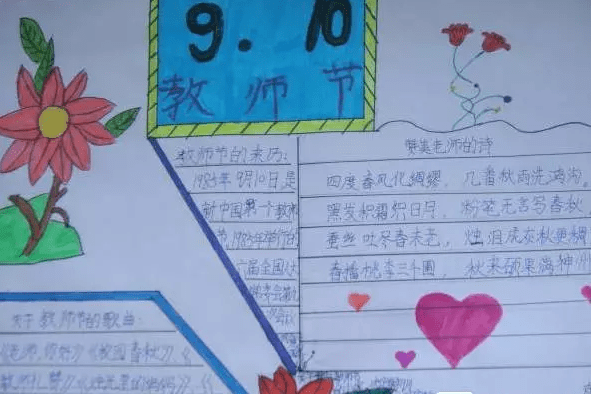 9.10
教师节
教师节的来历:
1985年9月10日是
新中国第一个教师
节,1985年举行的
六届全国人大
赞美老师的诗
四度春风化绸缪，几番秋雨洗鸿沟。
黑发积霜织日月，粉笔无言写春秋。
蚕丝吐尽春未老，烛泪成灰秋更稠
春播桃李三千圃，秋来硕果满神州
关于教师节的歌曲:
《老师,你好》《校园春秋》、《